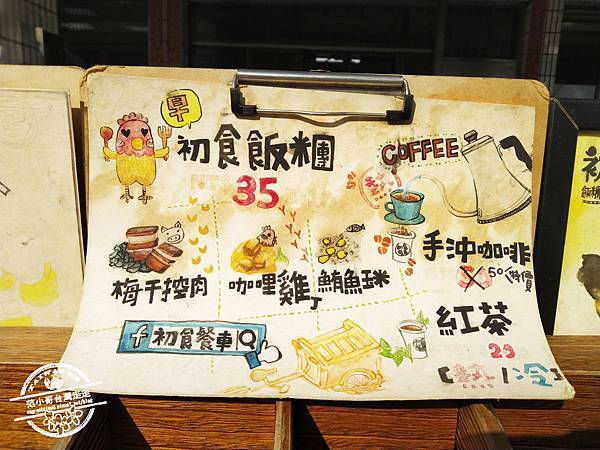 早
初食飯糰
35
梅干控肉
咖哩雞丁
鮪魚玉米
初食餐車
COFFEE
熱
手沖咖啡
50/特價
紅茶
25
[熱/冷]
范小哥台灣走走